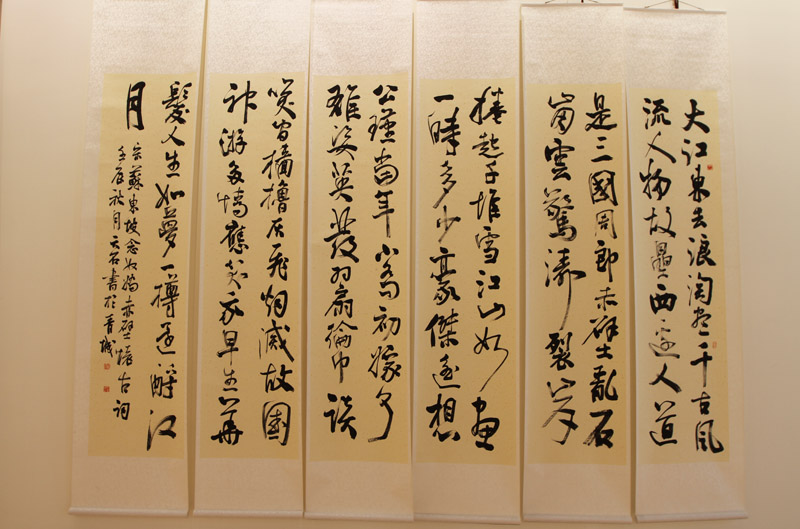 大江東去浪淘盡千古風
流人物故壘西邊人道
是三國周郎赤壁亂石
崩雲驚濤裂岸
捲起千堆雪江山如畫
一時多少豪傑遙想
公瑾當年小喬初嫁了
雄姿英發羽扇綸巾談
笑間檣櫓灰飛烟滅故國
神游多情應笑我早生華
髮人生如夢一樽還酹江
月
宋蘇東坡念奴嬌赤壁懷古詞
壬辰秋月石書於城